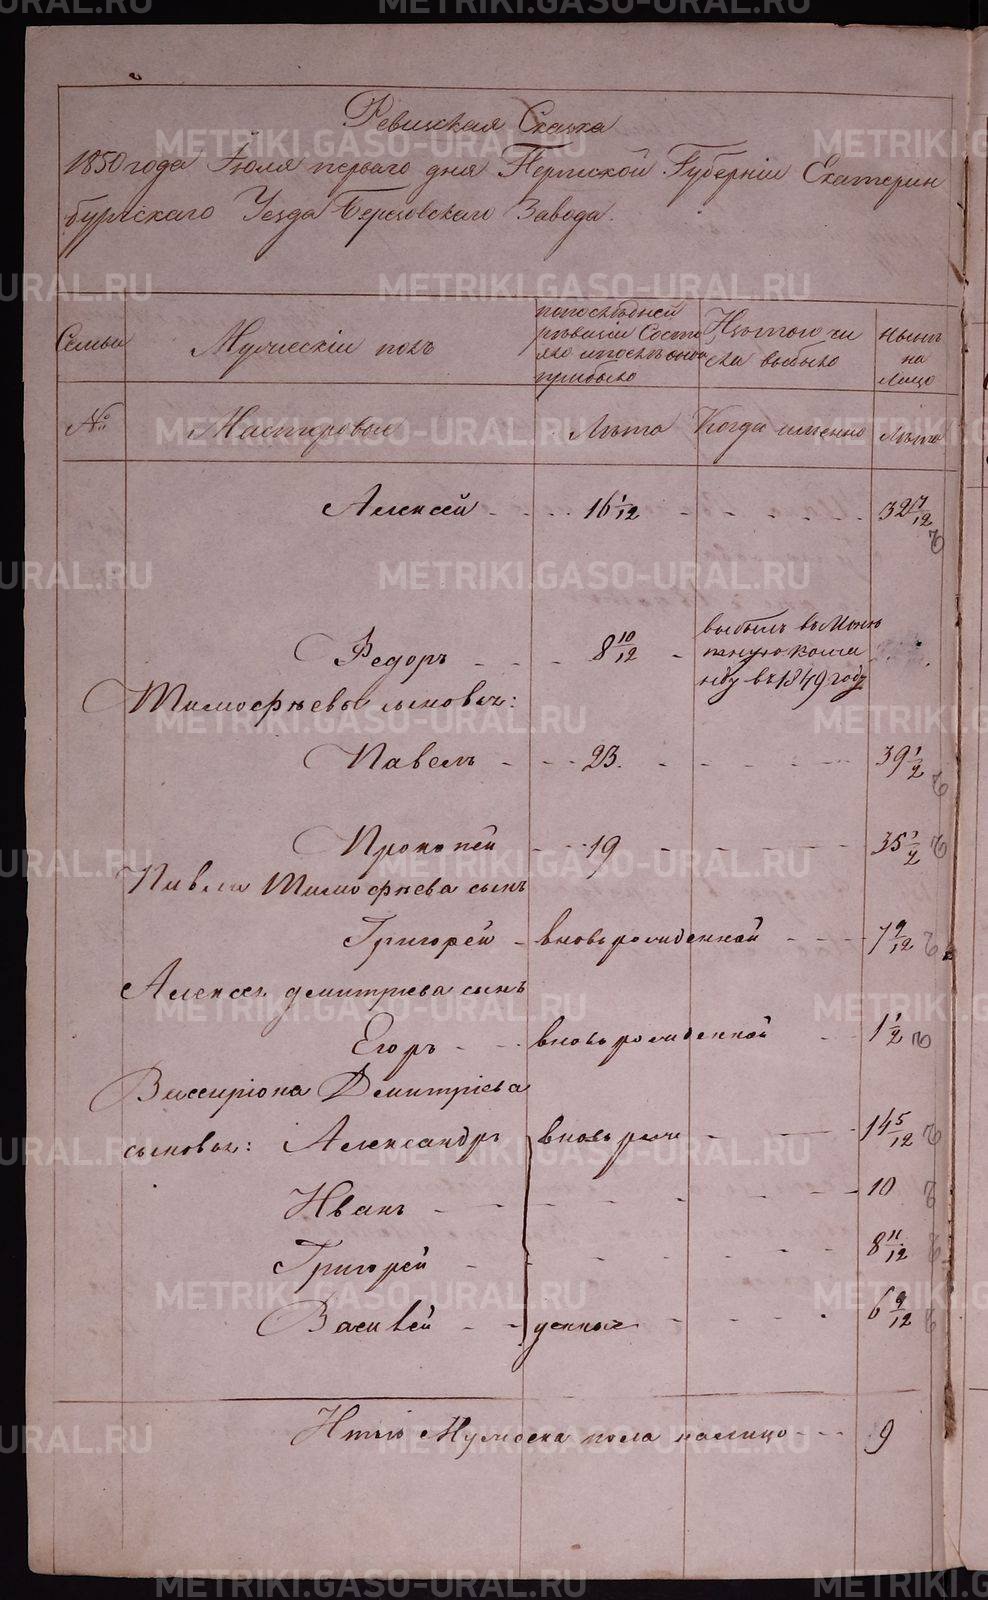 Ревизская Сказка
1850 года Июля перваго дня Пермской Губерніи Екатерин
бургскаго Уезда Березовскаго Завода.
Семьи
Мужескій полъ
попоследней
ревизіи состо
яло и после оной
прибыло
Изтого чи
сла выбыло
Ныне
на
лицо
№
Мастеровые
Лета
Когда именно
Лета
Алексей - - - - 16 1/12 - - - - - 32 7/12
Федоръ - - - 8 10/12 - выбылъ въ Монетную команду въ 1849 году
Тимофеевы сыновья:
Павелъ - - - 23. - - - - - 39 1/2
Прокопей - - - 19 - - - - - 35 1/2
Павла Тимофеева сынъ
Григорей - вновьрожденной - - - 7 9/12
Алексея дмитриева сынъ
Егоръ - - вновьрожденной - - 1 1/2
Виссаріона Дмитріева
сыновья: Александръ вновь рож - - - 14 5/12
Иванъ - - - - - - - - 10
Григорей - - - - - - - 8 11/12
Василей - - денные - - - - 6 9/12
Итого Мужеска пола налицо - - - 9
METRIKI.GASO-URAL.RU